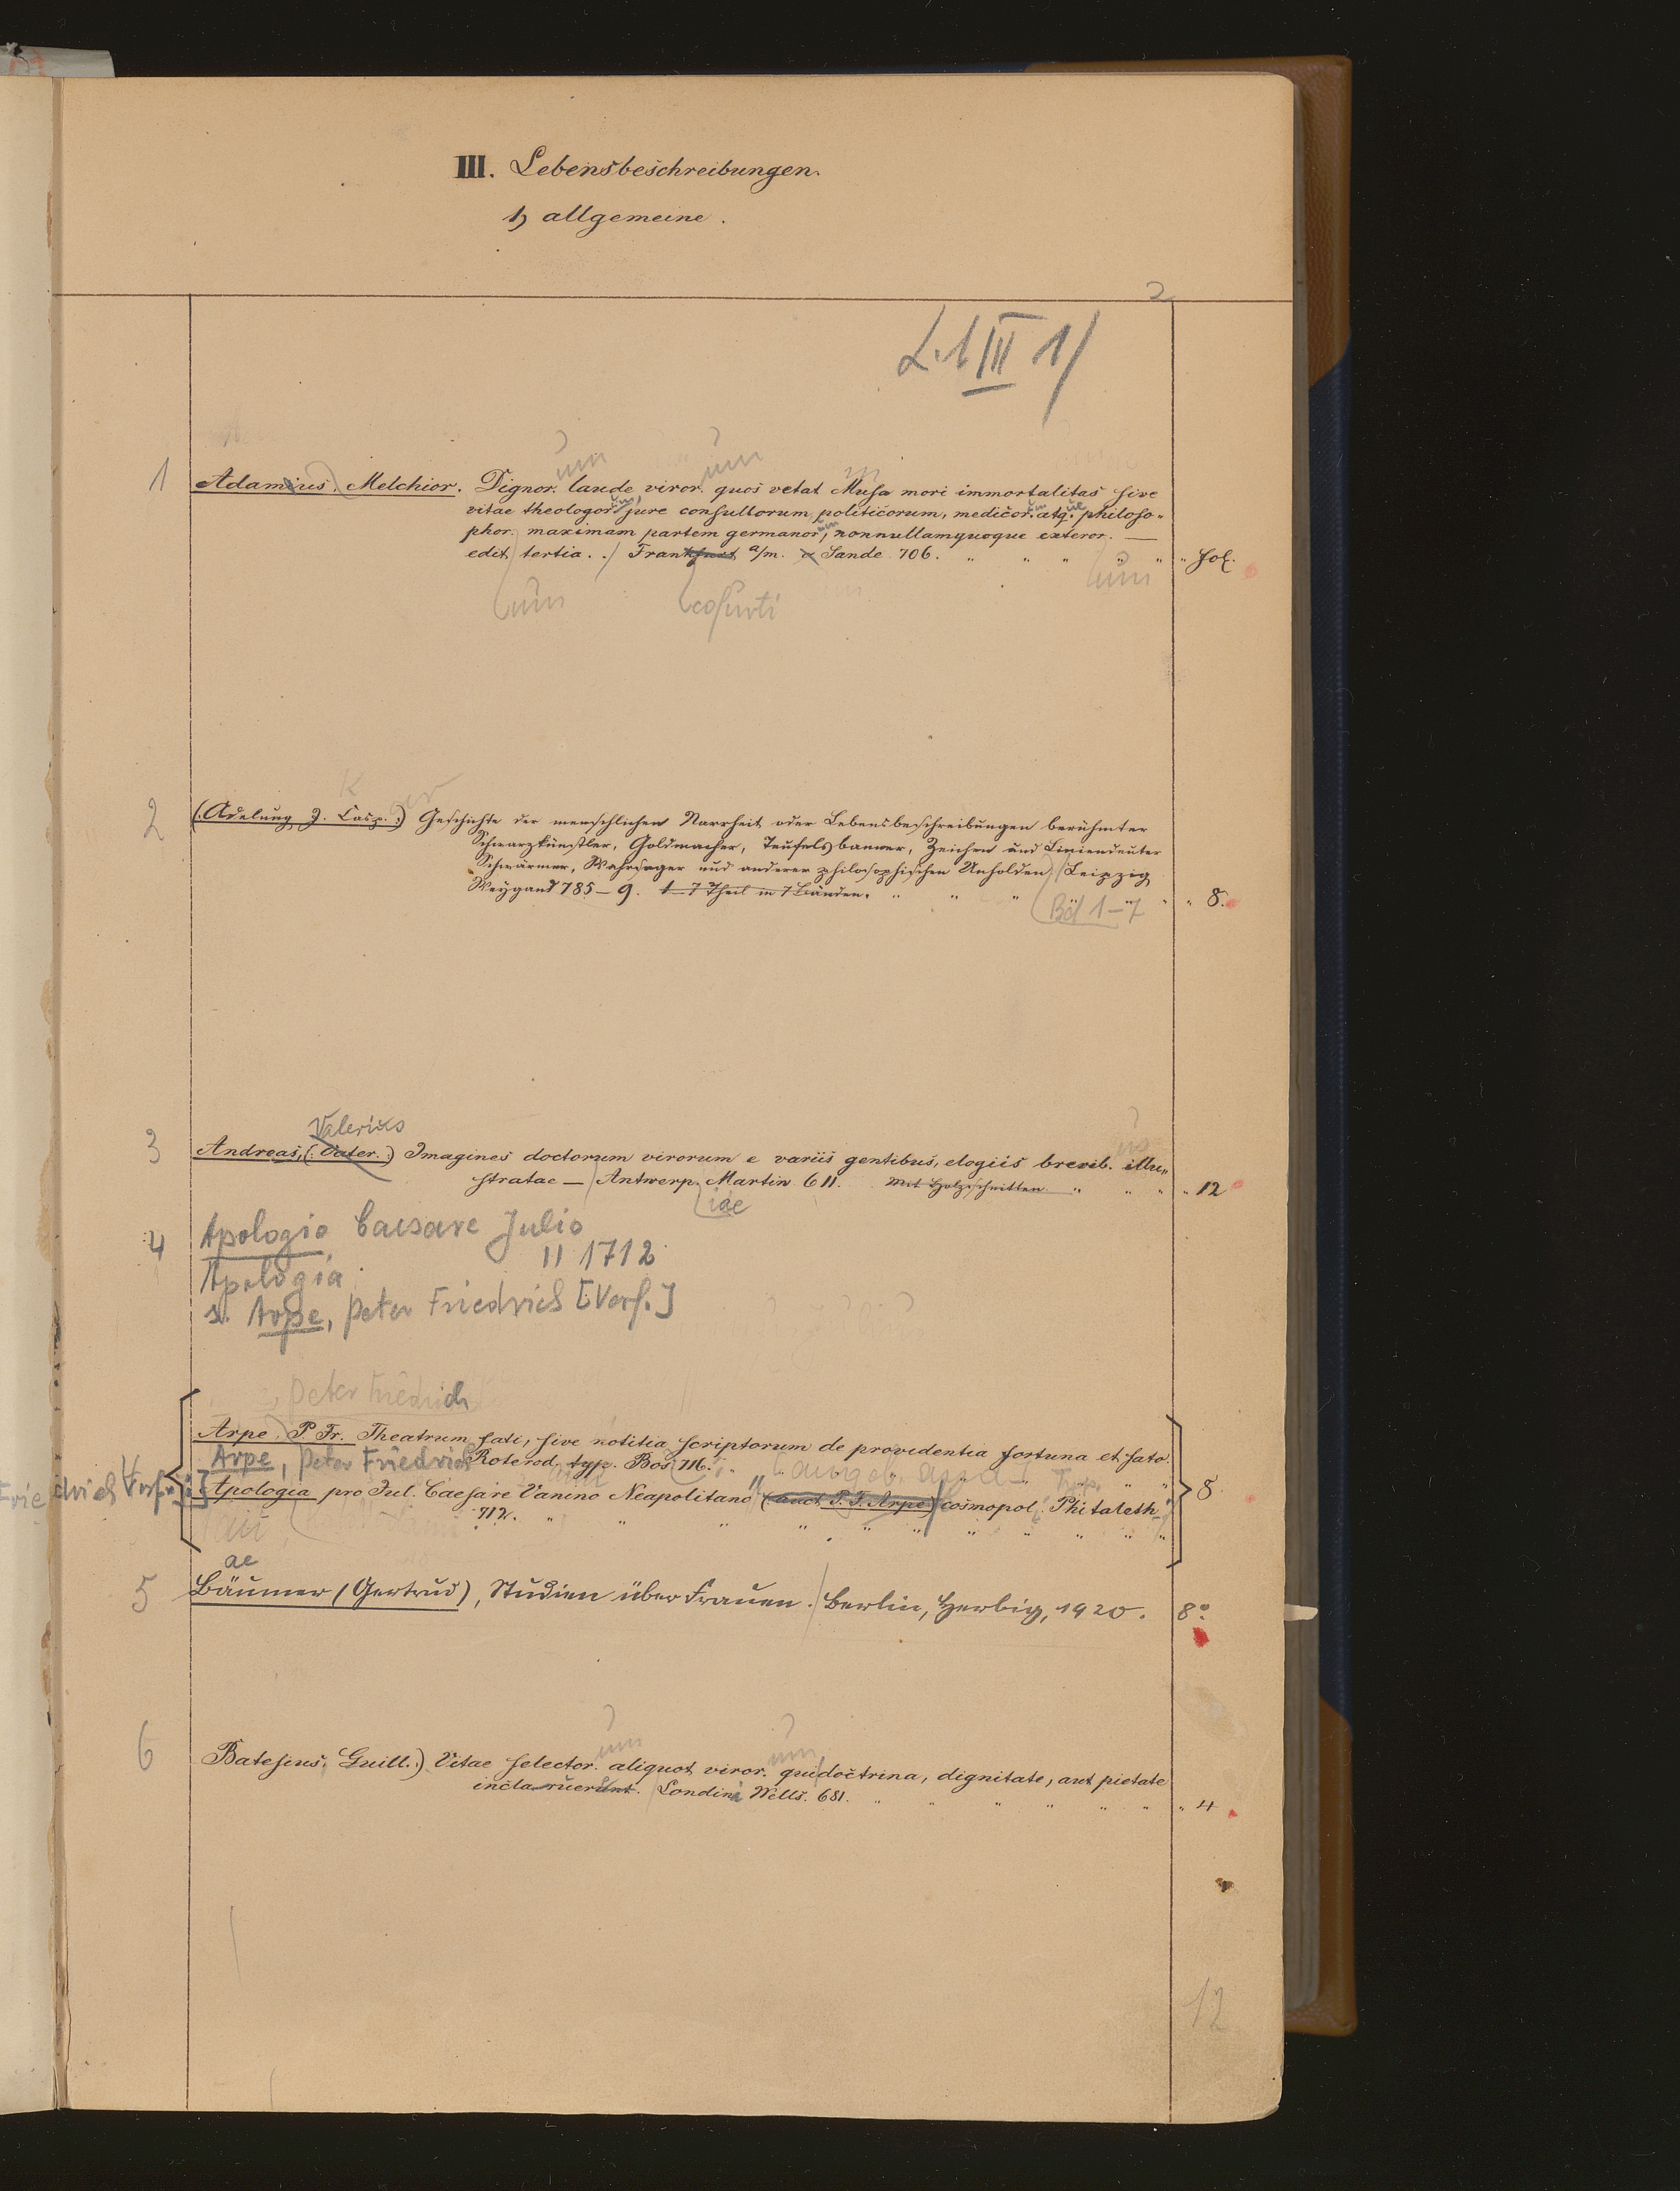 III. Lebensbeschreibungen.
1) allgemeine.
2
L.1 III 1)
um um
1 Adamius. Melchior. Dignor. laude viror. quos vetat Musa mori immortalitas sive
vitae theologor. jure consultorum politicorum, medicor. atq. philoso-
phor. maximam partem germanor, nonnullamquoque exteror. —
edit tertia. Frankfurt a/m. Sande 706. " " " " " " fol.
um cofurti um
2 (Adelung J. Casp.) Geschichte der menschlichen Narrheit oder Lebensbeschreibungen berühmter
Schwarzkünstler, Goldmacher, Teufelsbanner, Zeichen und Liniendeuter
Schwärmer, Wahrsager und anderer philosophischen Unholden Leipzig
Weygand 785–9. 1–7 Theil in 7 Bänden. " " " " " " 8.
Bd 1–7
Valerius
3 Andreas, (Valer.) Imagines doctorum virorum e variis gentibus, elogiis brevib. illu-
stratae — Antwerp. Martin 611. Mit Holzschnitten " " " " 12
iae
4 Apologia Caesare Julio
" 1712
Apologia
s. Arpe, Peter Friedrich [Verf.]
Peter Friedrich
Arpe. P. Fr. Theatrum fati, sive notitia scriptorum de providentia fortuna et fato.
Arpe, Peter Friedrich Roterod. typ. Bos 716.
Apologia pro Jul. Caesare Vanino Neapolitano (auct. P. F. Arpe) cosmopol. Philaleth. 8
712. " " " " " " " " " "
ae
5 Bäumer (Gertrud), Studien über Frauen. Berlin, Herbig, 1920. 8°
um um
6 Batesius, Guill.) Vitae selector. aliquot viror. qui doctrina, dignitate, aut pietate
inclaruerunt. Londini Wells. 681. " " " " " " " 4
12